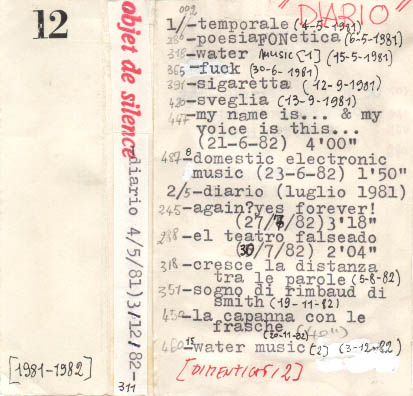 12
[1981-1982]
objet de silence
-diario 4/5/81)3/12/82-
311
"DIARIO"
002
1/-temporale (4-5-1981)
-poesiaFONetica (6-5-1981)
318-water MUSIC [1] (15-5-1981)
365-fuck (30-6-1981)
391-sigaretta (12-9-1981)
420-sveglia (13-9-1981)
447-my name is... & my
voice is this...
(21-6-82) 4'00"
487-domestic electronic
music (23-6-82) 1'50"
2/5-diario (luglio 1981)
245-again?yes forever!
(27/7/82)3'18"
288-el teatro falseado
(30/7/82) 2'04"
318-cresce la distanza
tra le parole (5-8-82)
351-sogno di rimbaud di
smith (19-11-82)
450-la capanna con le
frasche (20-11-82) (40")
460-water music [2] (3-12-82)